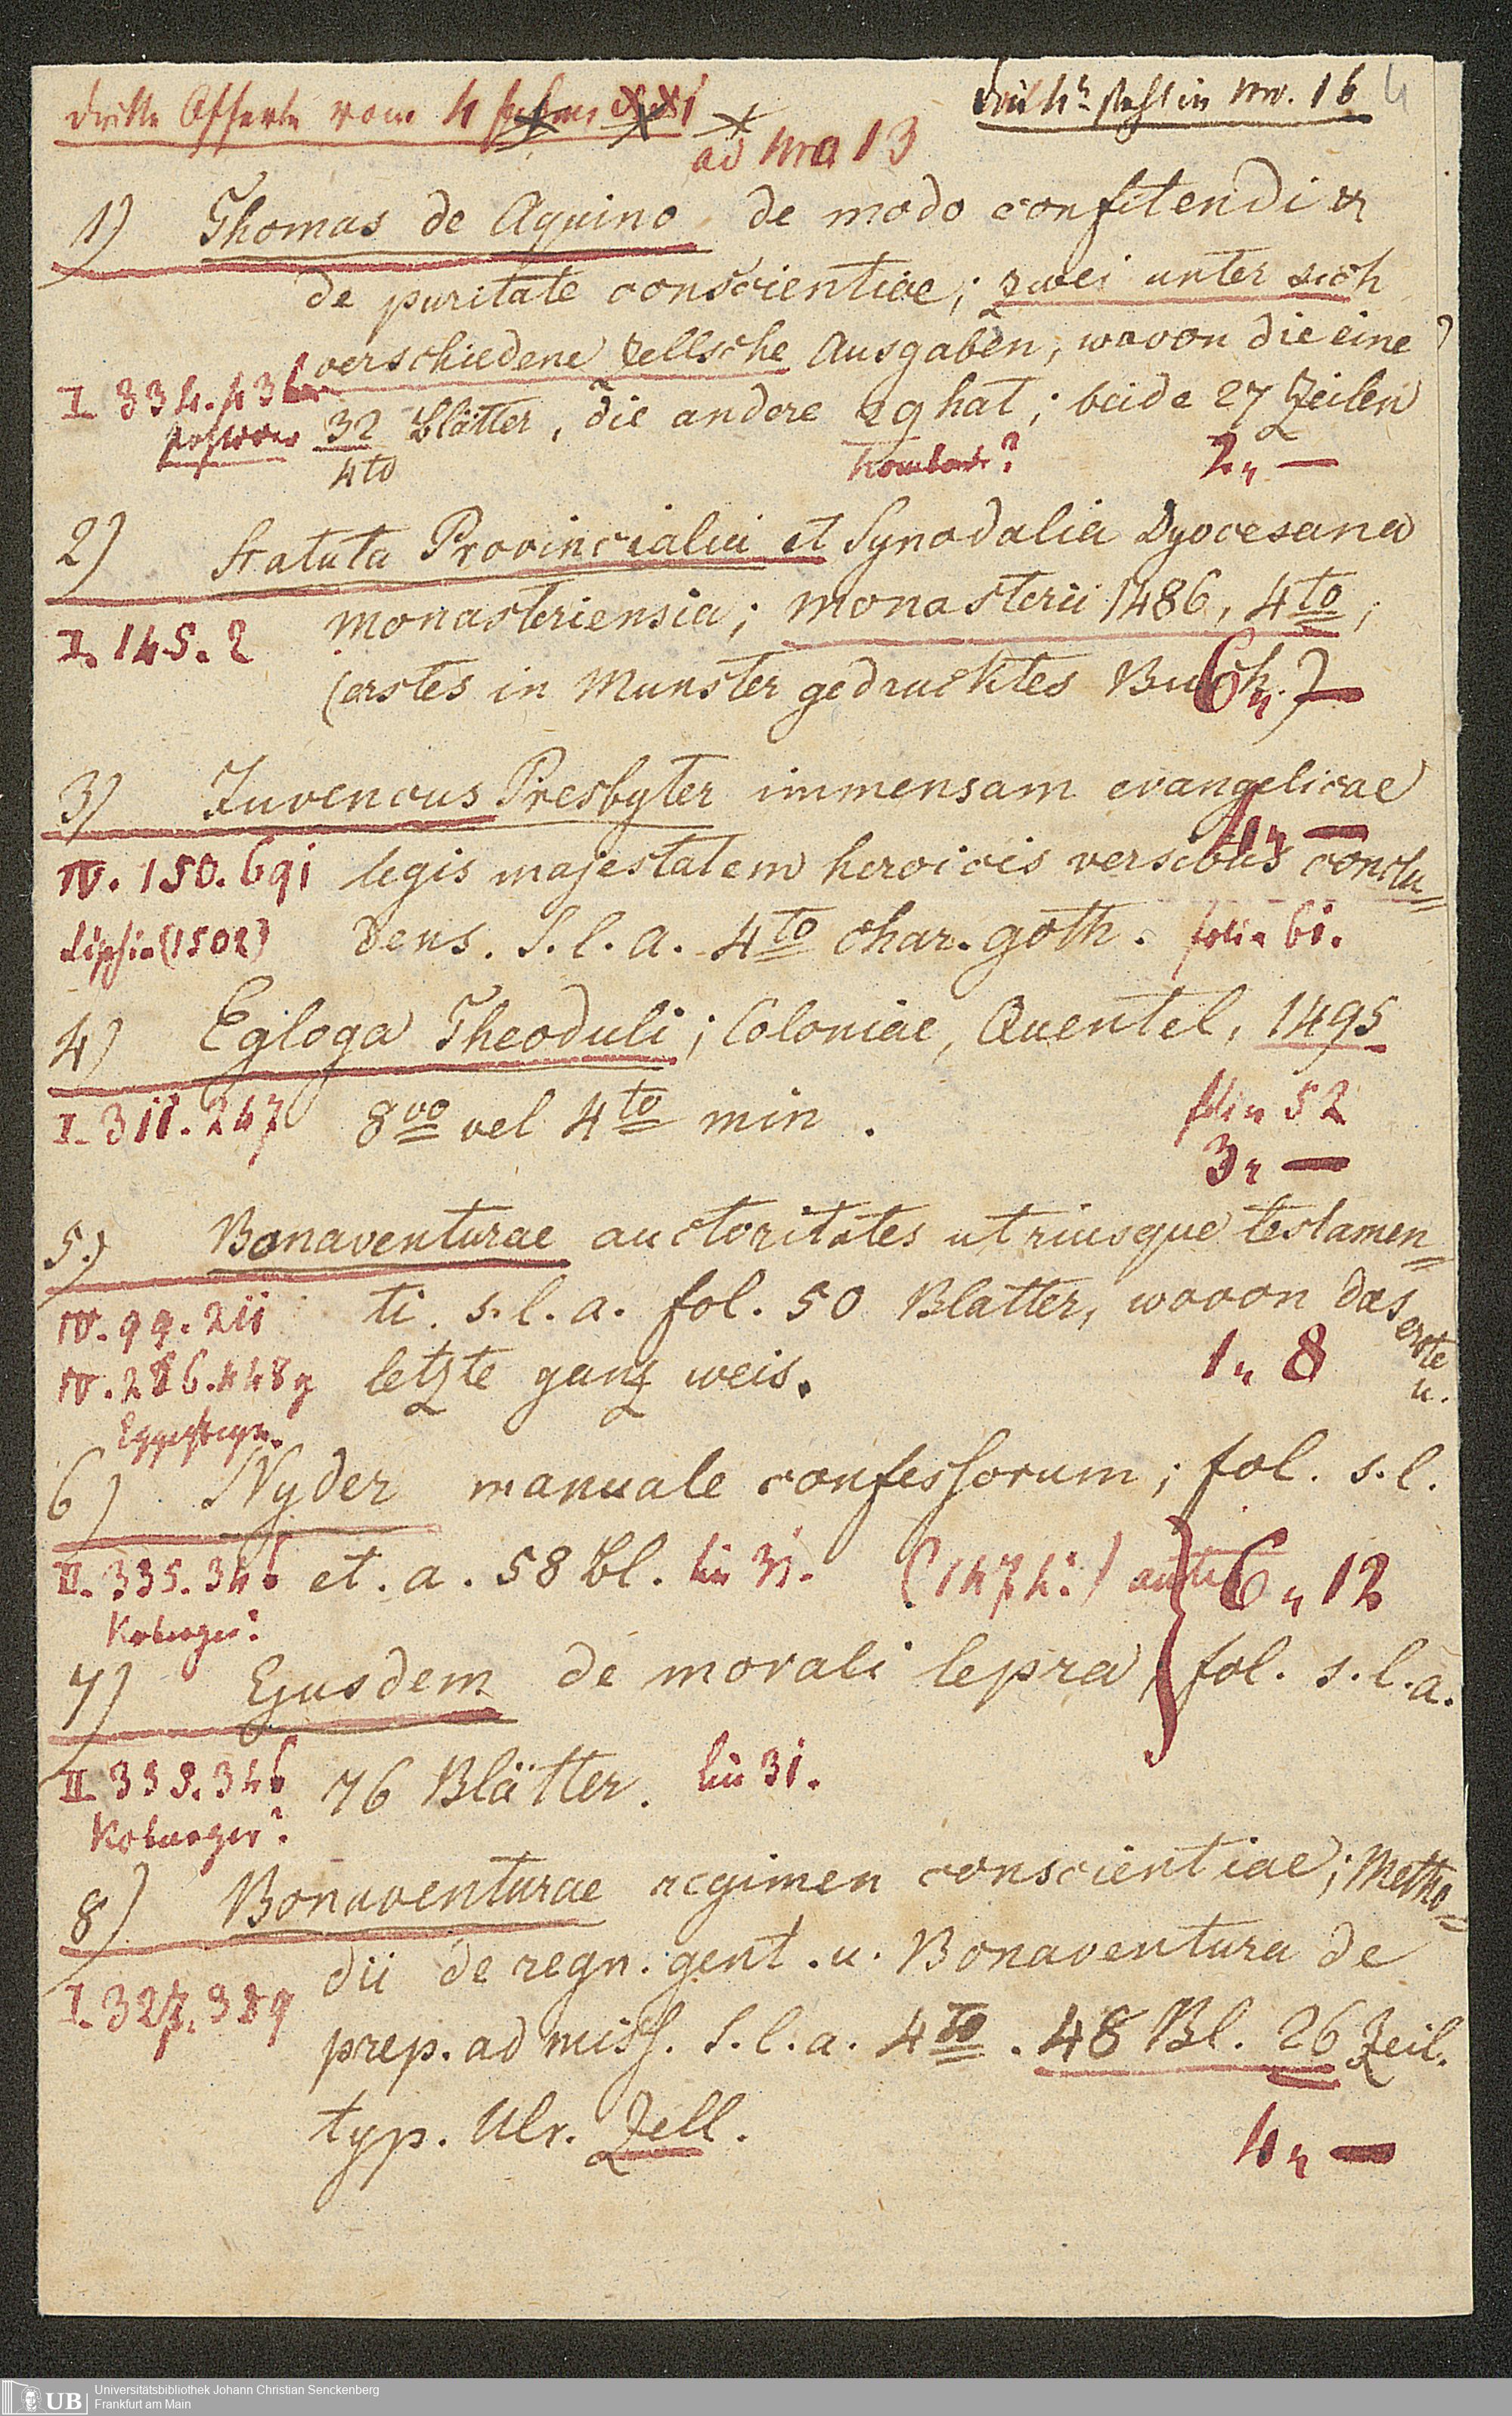 dritte Offerte vom 4
steht in Nro. 16 4
ad Nro 13
1) Thomas de Aquino de modo confitendi &
de puritate conscientiae; zwei unter sich
verschiedene Zellsche Ausgaben, wovon die eine
I. 334. 436
32 Blätter, die andere 29 hat; beide 27 Zeilen
4to 2 „ —
2) Statuta Provincialia et Synodalia Dyocesana
monasteriensia; monasterii 1486, 4to,
I. 145. 2
(erstes in Munster gedrucktes Buch.) 6 „ —
3) Iuvencus Presbyter immensam evangelicae
4 „ —
IV. 150. 691 legis majestatem heroicis versibus conclu=
Lipsiae (1502) dens. S. l. a. 4to char. goth. folia 61.
4) Egloga Theoduli; Coloniae, Quentel, 1495
I. 311. 247 8vo vel 4to min. folia 52
3 „ —
5.) Bonaventurae auctoritates utriusque testamen=
IV. 99. 211 ti. s. l. a. fol. 50 Blatter, wovon das erste u.
IV. 286. 448 letzte ganz weis. 1 „ 8
6) Nyder manuale confessorum; fol. s. l.
II. 335. 346 et. a. 58 bl. lin 31. (1474.) ante 6 „ 12
Koburger?
7) Ejusdem de morali lepra, fol. s. l. a.
II. 339. 346 76 Blätter. lin 31.
Koburger?
8) Bonaventurae regimen conscientiae; Metho=
dii de regn. gent. u. Bonaventura de
I. 327. 389
prep. ad miss. S. l. a. 4to. 48 Bl. 26 Zeil.
typ. Ulr. Zell.
4 „ —
UB Universitätsbibliothek Johann Christian Senckenberg
Frankfurt am Main